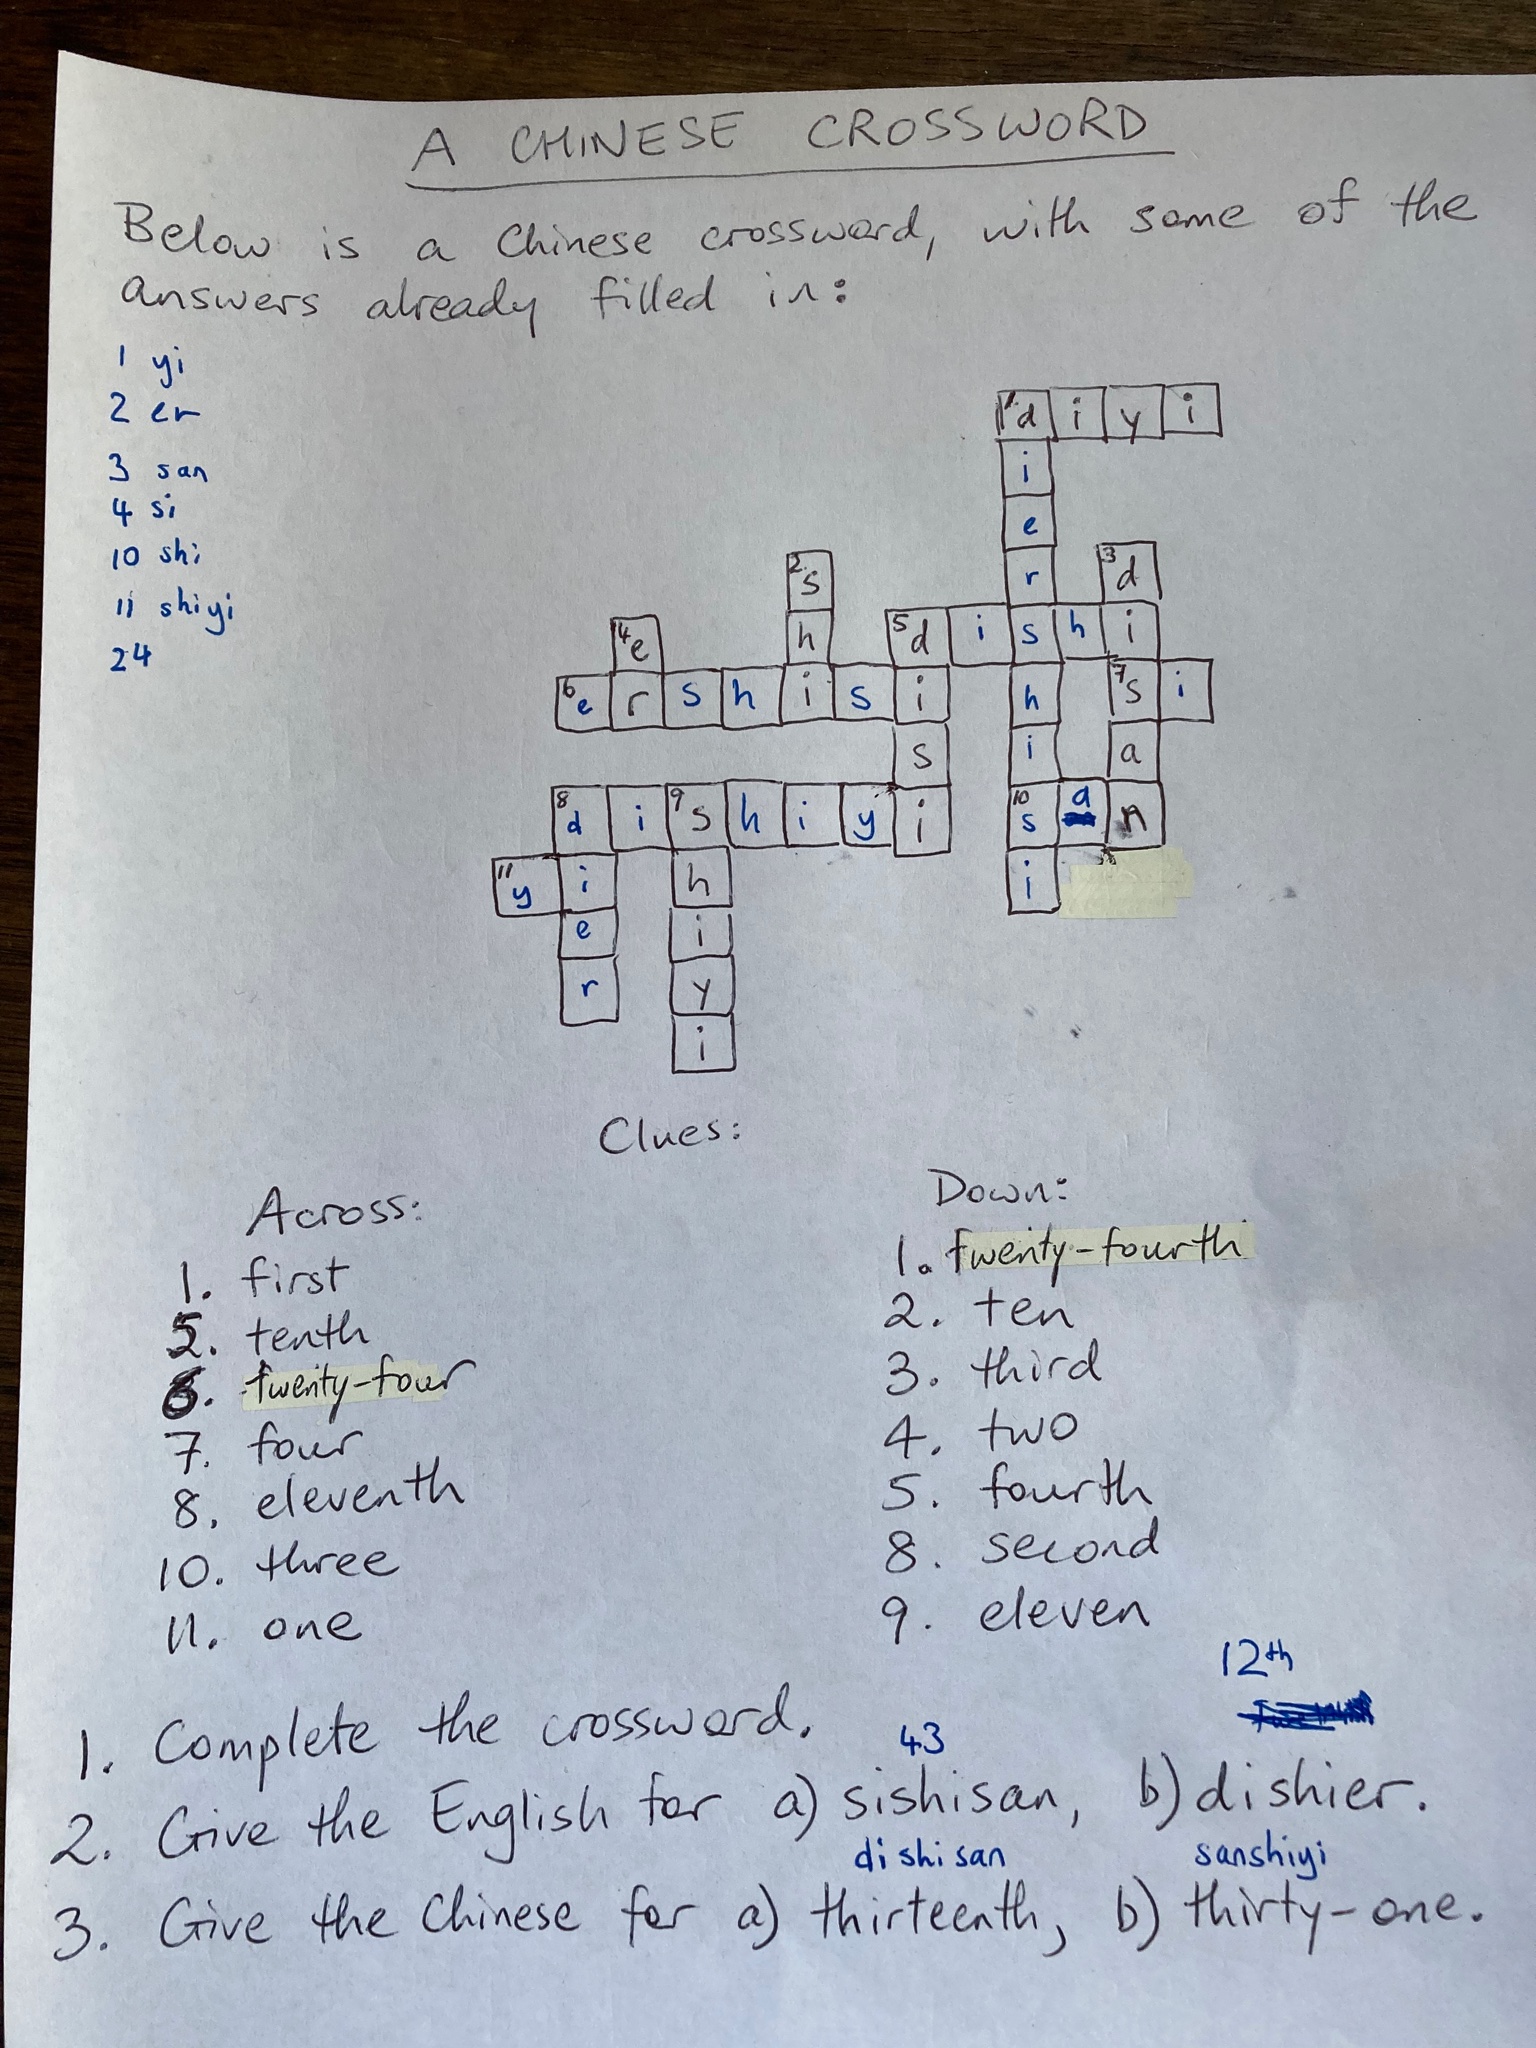 A CHINESE CROSSWORD
Below is a Chinese crossword, with some of the
answers already filled in:
1 yi
2 er
3 san
4 si
10 shi
11 shiyi
24
1 d i y i
i
e
r 3 d
2. s
h 5 d i s h i
4 e
6 e r s h i s i h 7 s i
s i a
8 d i 9 s h i y i 10 s a n
11 y i h i
e i
r y
i
Clues:
Across:
1. first
5. tenth
6. twenty-four
7. four
8. eleventh
10. three
11. one
Down:
1. twenty-fourth
2. ten
3. third
4. two
5. fourth
8. second
9. eleven
12th
1. Complete the crossword.
43
2. Give the English for a) sishisan, b) dishier.
dishisan sanshiyi
3. Give the Chinese for a) thirteenth, b) thirty-one.